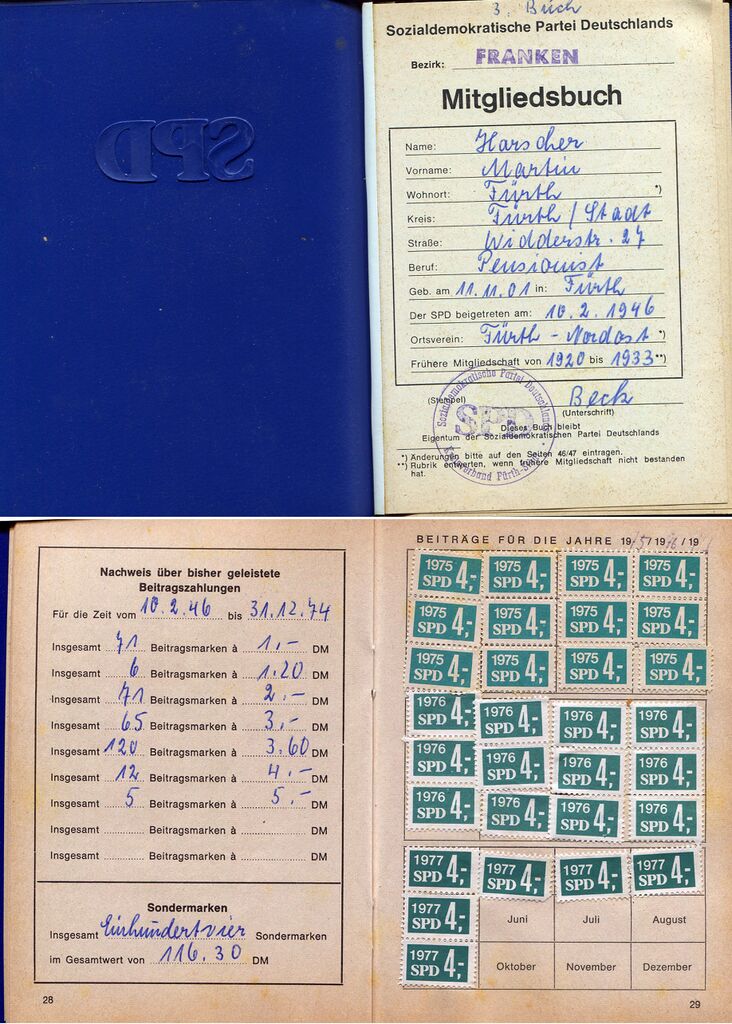 SPD
3. Buch
Sozialdemokratische Partei Deutschlands
Bezirk: FRANKEN
Mitgliedsbuch
Name: Harscher
Vorname: Martin
Wohnort: Fürth *)
Kreis: Fürth / Stadt
Straße: Widderstr. 27
Beruf: Pensionist
Geb. am 11.11.01 in: Fürth
Der SPD beigetreten am: 10.2.1946
Ortsverein: Fürth - Nordost *)
Frühere Mitgliedschaft von 1920 bis 1933 **)
Sozialdemokratische Partei Deutschlands
SPD
(Stempel)
Beck
(Unterschrift)
Dieses Buch bleibt
Eigentum der Sozialdemokratischen Partei Deutschlands
*) Änderungen bitte auf den Seiten 46/47 eintragen.
**) Rubrik entwerten, wenn frühere Mitgliedschaft nicht bestanden
hat.
Nachweis über bisher geleistete
Beitragszahlungen
Für die Zeit vom 10.2.46 bis 31.12.74
Insgesamt 71 Beitragsmarken à 1.- DM
Insgesamt 6 Beitragsmarken à 1.20 DM
Insgesamt 71 Beitragsmarken à 2.- DM
Insgesamt 65 Beitragsmarken à 3.- DM
Insgesamt 120 Beitragsmarken à 3.60 DM
Insgesamt 12 Beitragsmarken à 4.- DM
Insgesamt 5 Beitragsmarken à 5.- DM
Insgesamt Beitragsmarken à DM
Insgesamt Beitragsmarken à DM
Sondermarken
Insgesamt Einhundertvier Sondermarken
im Gesamtwert von 116.30 DM
28
BEITRÄGE FÜR DIE JAHRE 19 /19 /19
1975 1975 1975 1975
SPD 4,- SPD 4,- SPD 4,- SPD 4,-
1975 1975 1975 1975
SPD 4,- SPD 4,- SPD 4,- SPD 4,-
1975 1975 1975 1975
SPD 4,- SPD 4,- SPD 4,- SPD 4,-
1976 1976 1976 1976
SPD 4,- SPD 4,- SPD 4,- SPD 4,-
1976 1976 1976 1976
SPD 4,- SPD 4,- SPD 4,- SPD 4,-
1976 1976 1976 1976
SPD 4,- SPD 4,- SPD 4,- SPD 4,-
1977 1977 1977 1977
SPD 4,- SPD 4,- SPD 4,- SPD 4,-
1977
SPD 4,- Juni Juli August
1977
SPD 4,- Oktober November Dezember
29